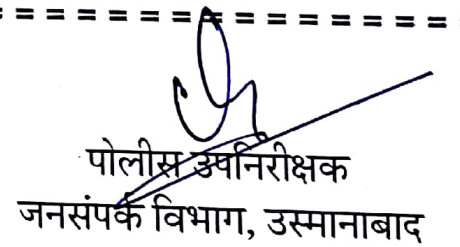 = = = = = = = = = = = = = = = =
पोलीस उपनिरीक्षक
जनसंपर्क विभाग, उस्मानाबाद